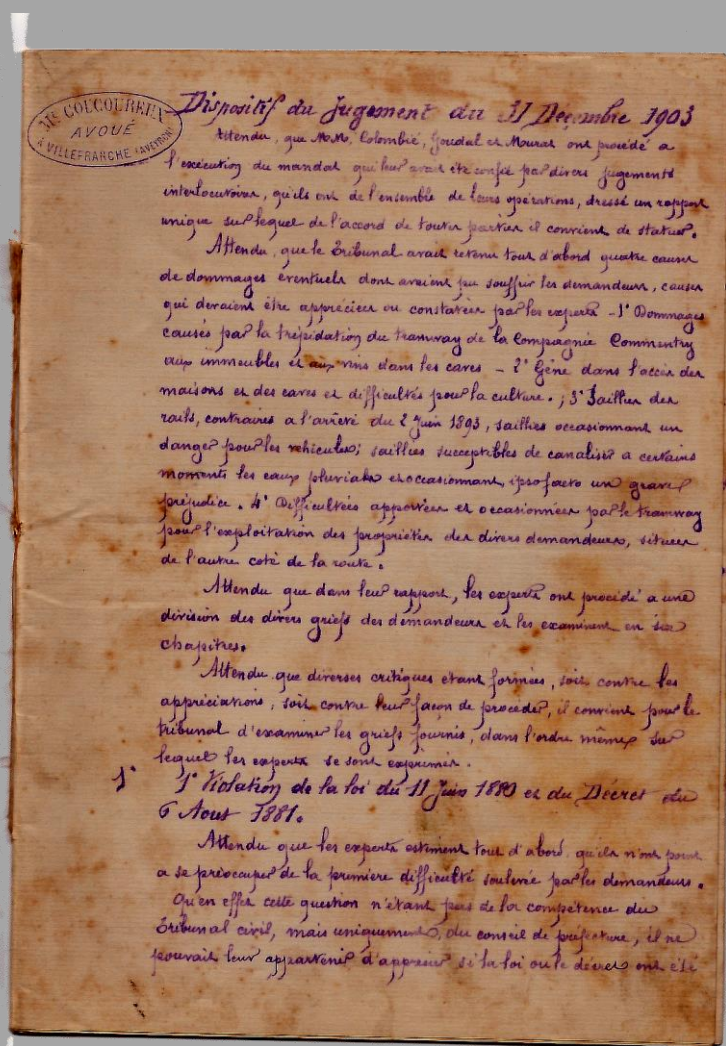 Mᵉ COLCOUREUX
AVOUÉ
À VILLEFRANCHE (AVEYRON)
Dispositif du Jugement du 31 Décembre 1903
Attendu, que M.M. Colombié, Joudal et Mourat ont procédé a
l'exécution du mandat qui leur avait été confié par divers jugements
interlocutoires, qu'ils ont de l'ensemble de leurs opérations, dressé un rapport
unique sur lequel de l'accord de toutes parties il convient de statuer.
Attendu, que le Tribunal avait retenu tout d'abord quatre causes
de dommages éventuels dont avaient pu souffrir les demandeurs, causes
qui devraient être appréciées ou constatées par les experts - 1° Dommages
causés par la trépidation du tramway de la Compagnie Commentry
aux immeubles et aux vins dans les caves - 2° Gêne dans l'accès des
maisons et des caves et difficultés pour la culture. ; 3° Saillies des
rails, contraires a l'arrêté du 2 Juin 1893, saillies occasionnant un
danger pour les véhicules; saillies susceptibles de canaliser a certains
moments les eaux pluviales et occasionnant, ipso facto un grave
préjudice. 4° Difficultées apportées et occasionnées par le tramway
pour l'exploitation des propriétés des divers demandeurs, situées
de l'autre coté de la route.
Attendu que dans leur rapport, les experts ont procédé a une
division des divers griefs des demandeurs et les examinent en six
chapitres.
Attendu que diverses critiques étant formées, soit contre les
appréciations, soit contre leur façon de procéder, il convient pour le
tribunal d'examiner les griefs fournis, dans l'ordre même sur
lequel les experts se sont exprimés.
1° 1° Violation de la loi du 11 Juin 1880 et du Décret du
6 Aout 1881.
Attendu que les experts estiment tout d'abord, qu'ils n'ont point
a se préoccuper de la première difficulté soulevée par les demandeurs.
Qu'en effet cette question n'étant pas de la compétence du
Tribunal civil, mais uniquement, du conseil de préfecture, il ne
pouvait leur appartenir d'apprécier si la loi ou le décret ont été